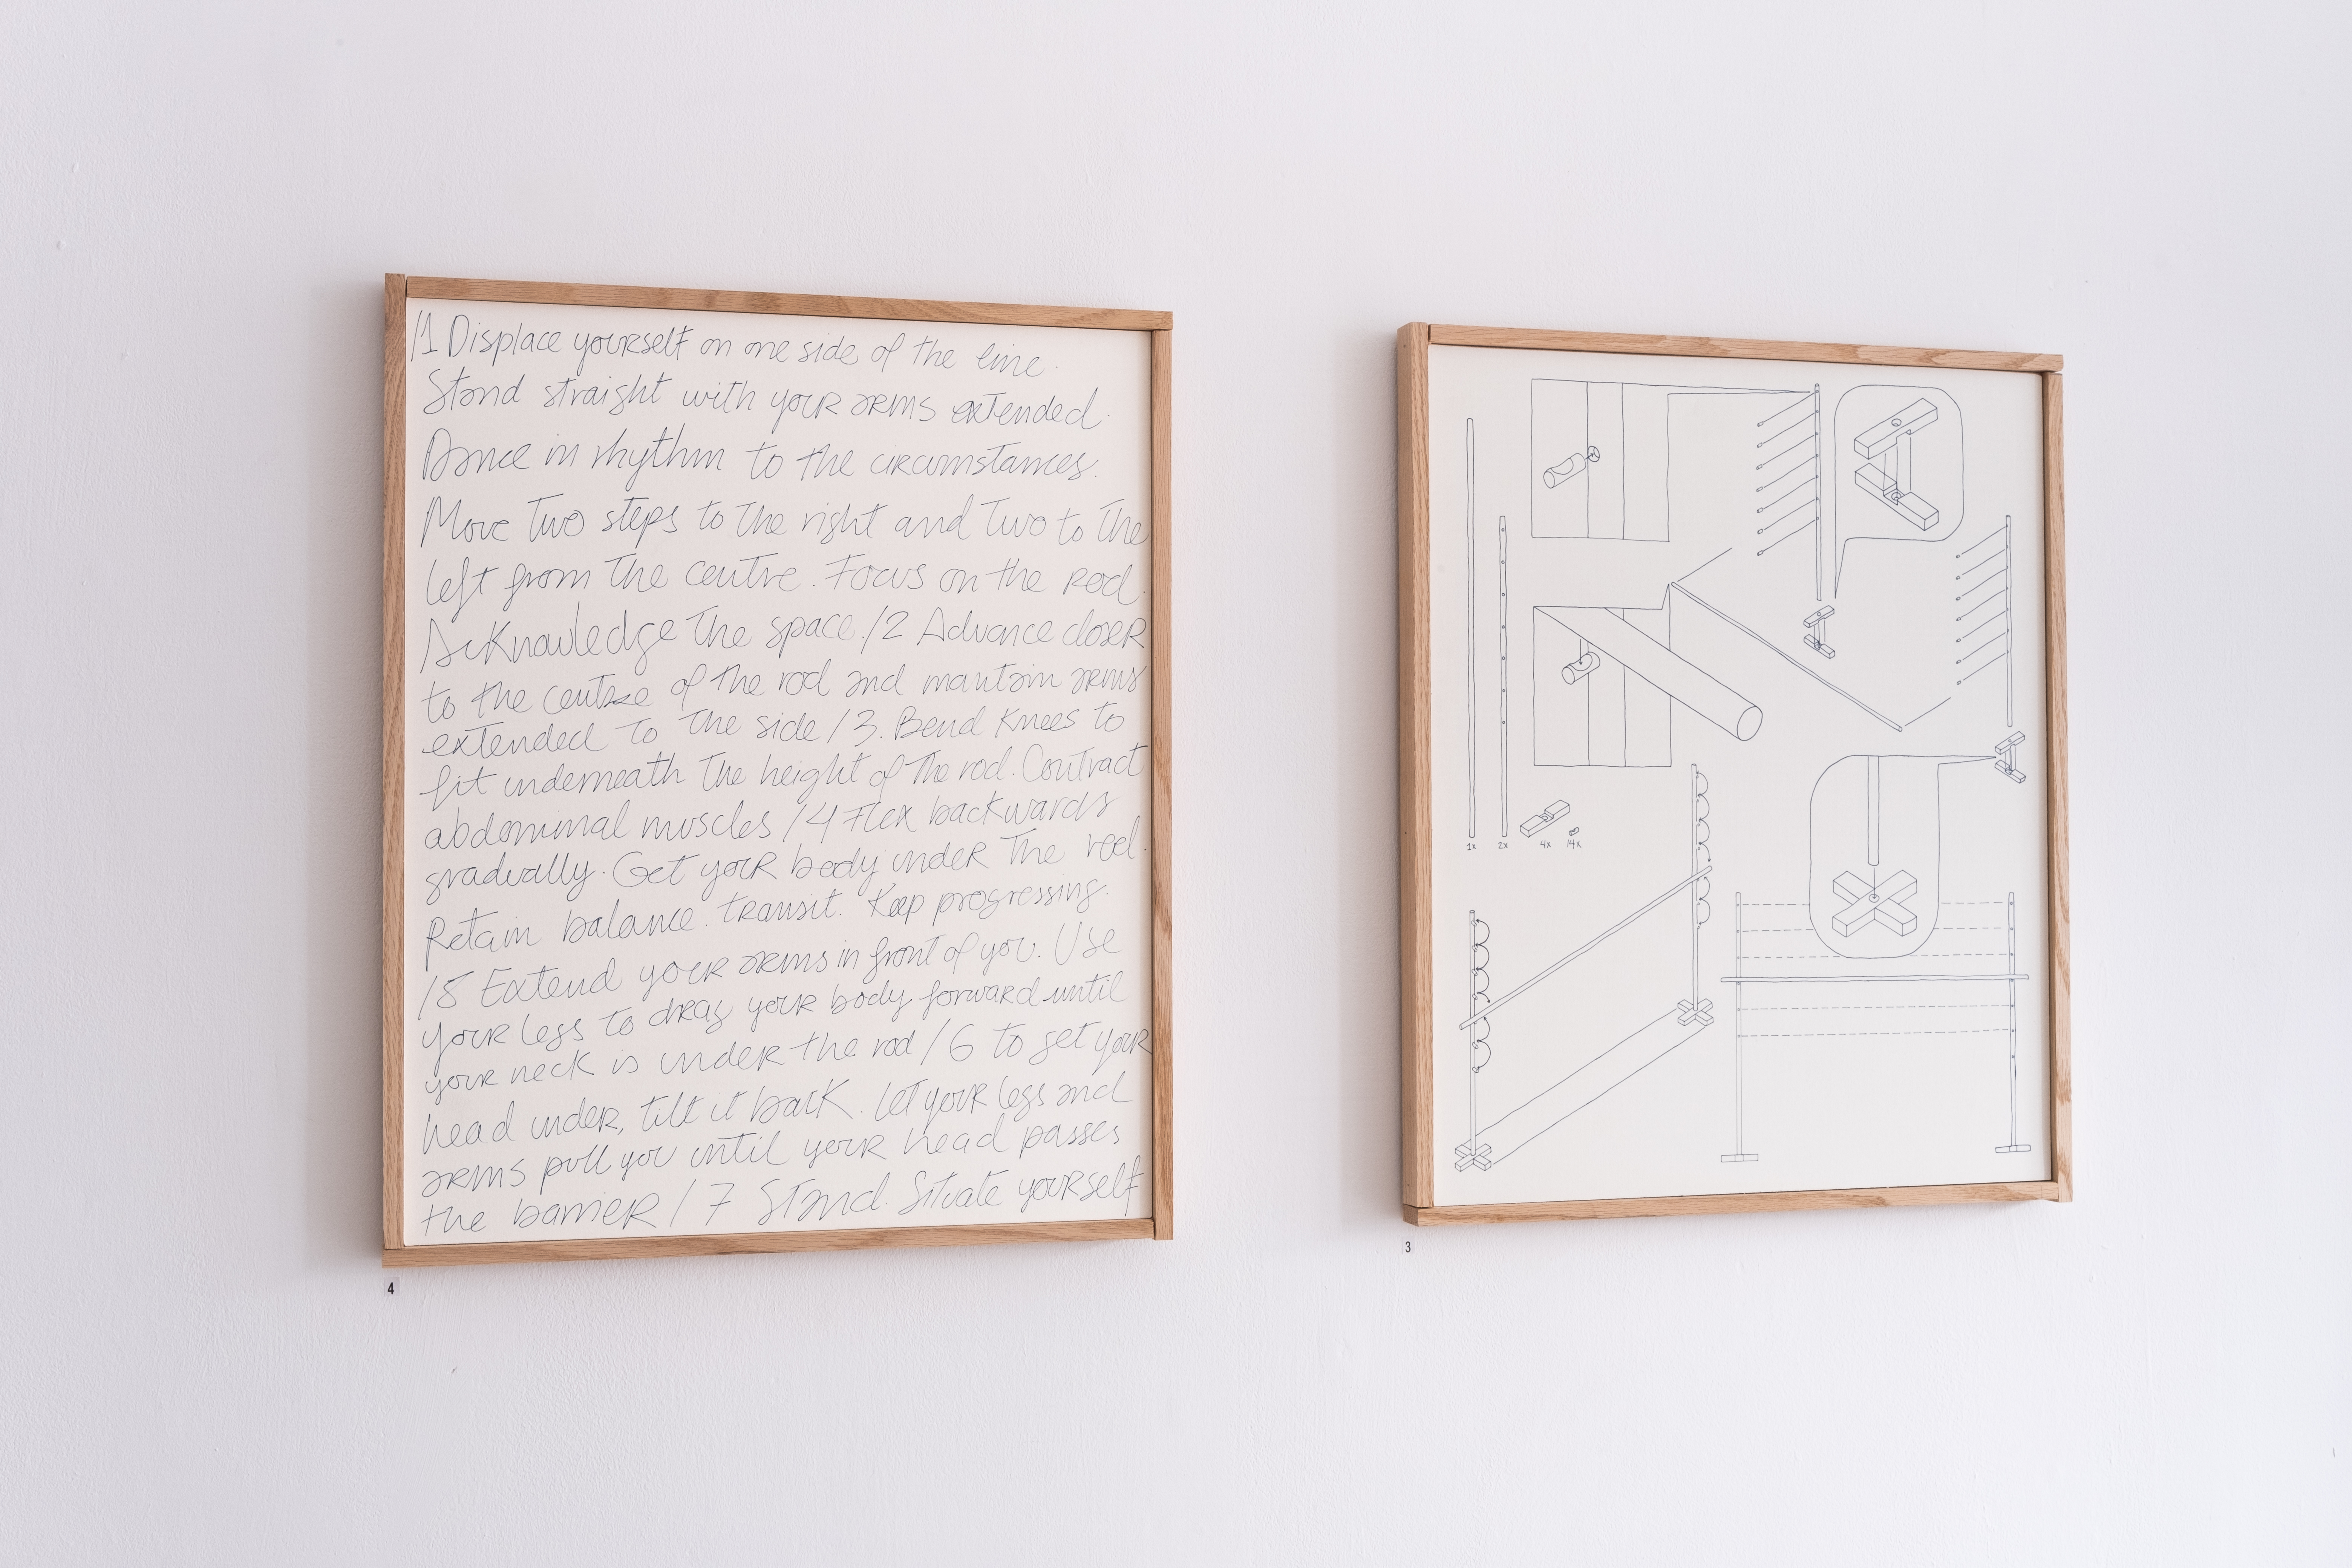 /1 Displace yourself on one side of the line.
Stand straight with your arms extended.
Dance in rhythm to the circumstances.
Move two steps to the right and two to the
left from the centre. Focus on the rod.
Acknowledge the space. /2 Advance closer
to the centre of the rod and mantain arms
extended to the side /3. Bend knees to
fit underneath the height of the rod. Contract
abdominal muscles /4 Flex backwards
gradually. Get your body under the rod.
Retain balance. transit. Keep progressing.
/5 Extend your arms in front of you. Use
your legs to drag your body forward until
your neck is under the rod /6 to get your
head under, tilt it back. Let your legs and
arms pull you until your head passes
the barrier /7 Stand. Situate yourself
4
1x 2x 4x 14x
3